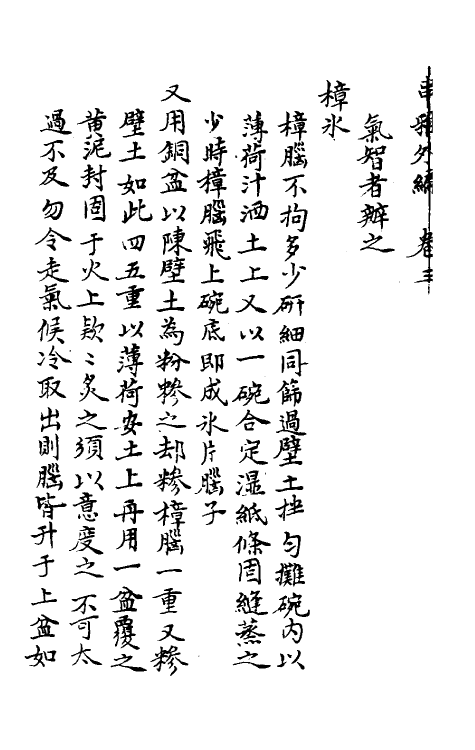 串雅外編　卷三
氣智者辨之
樟氷
樟腦不拘多少研細同篩過壁土拌勻攤碗內以
薄荷汁洒土上又以一碗合定湿紙條固縫蒸之
少時樟腦飛上碗底即成氷片腦子
又用銅盆以陳壁土為粉糝之却糝樟腦一重又糝
壁土如此四五重以薄荷安土上再用一盆覆之
黄泥封固于火上欵〻炙之須以意度之不可太
過不及勿令走氣候冷取出則腦皆升于上盆如